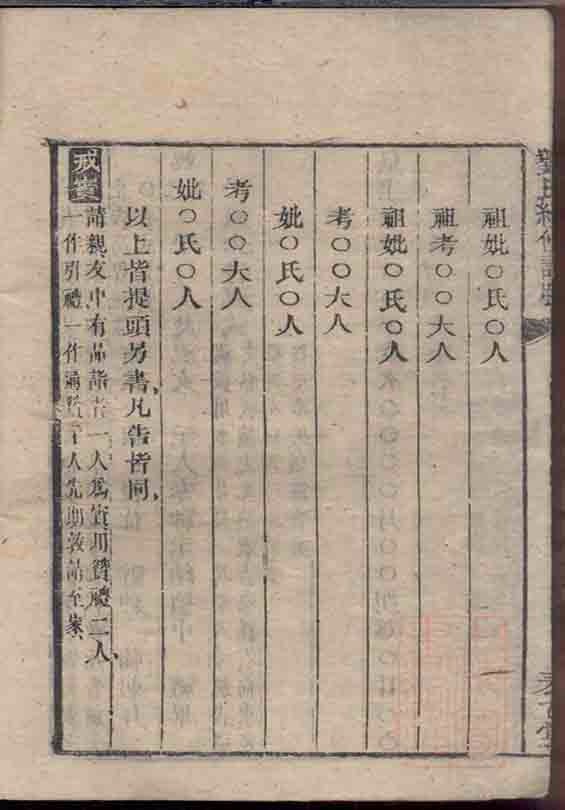 祖妣○氏○人
祖考○○大人
祖妣○氏○人
考○○大人
妣○氏○人
考○○大人
妣○氏○人
以上皆提頭另書凡告皆同
戒賓
請親友中有品詣者一人爲賓用贊禮二人
一作引禮一作通贊一人先期敦請至家